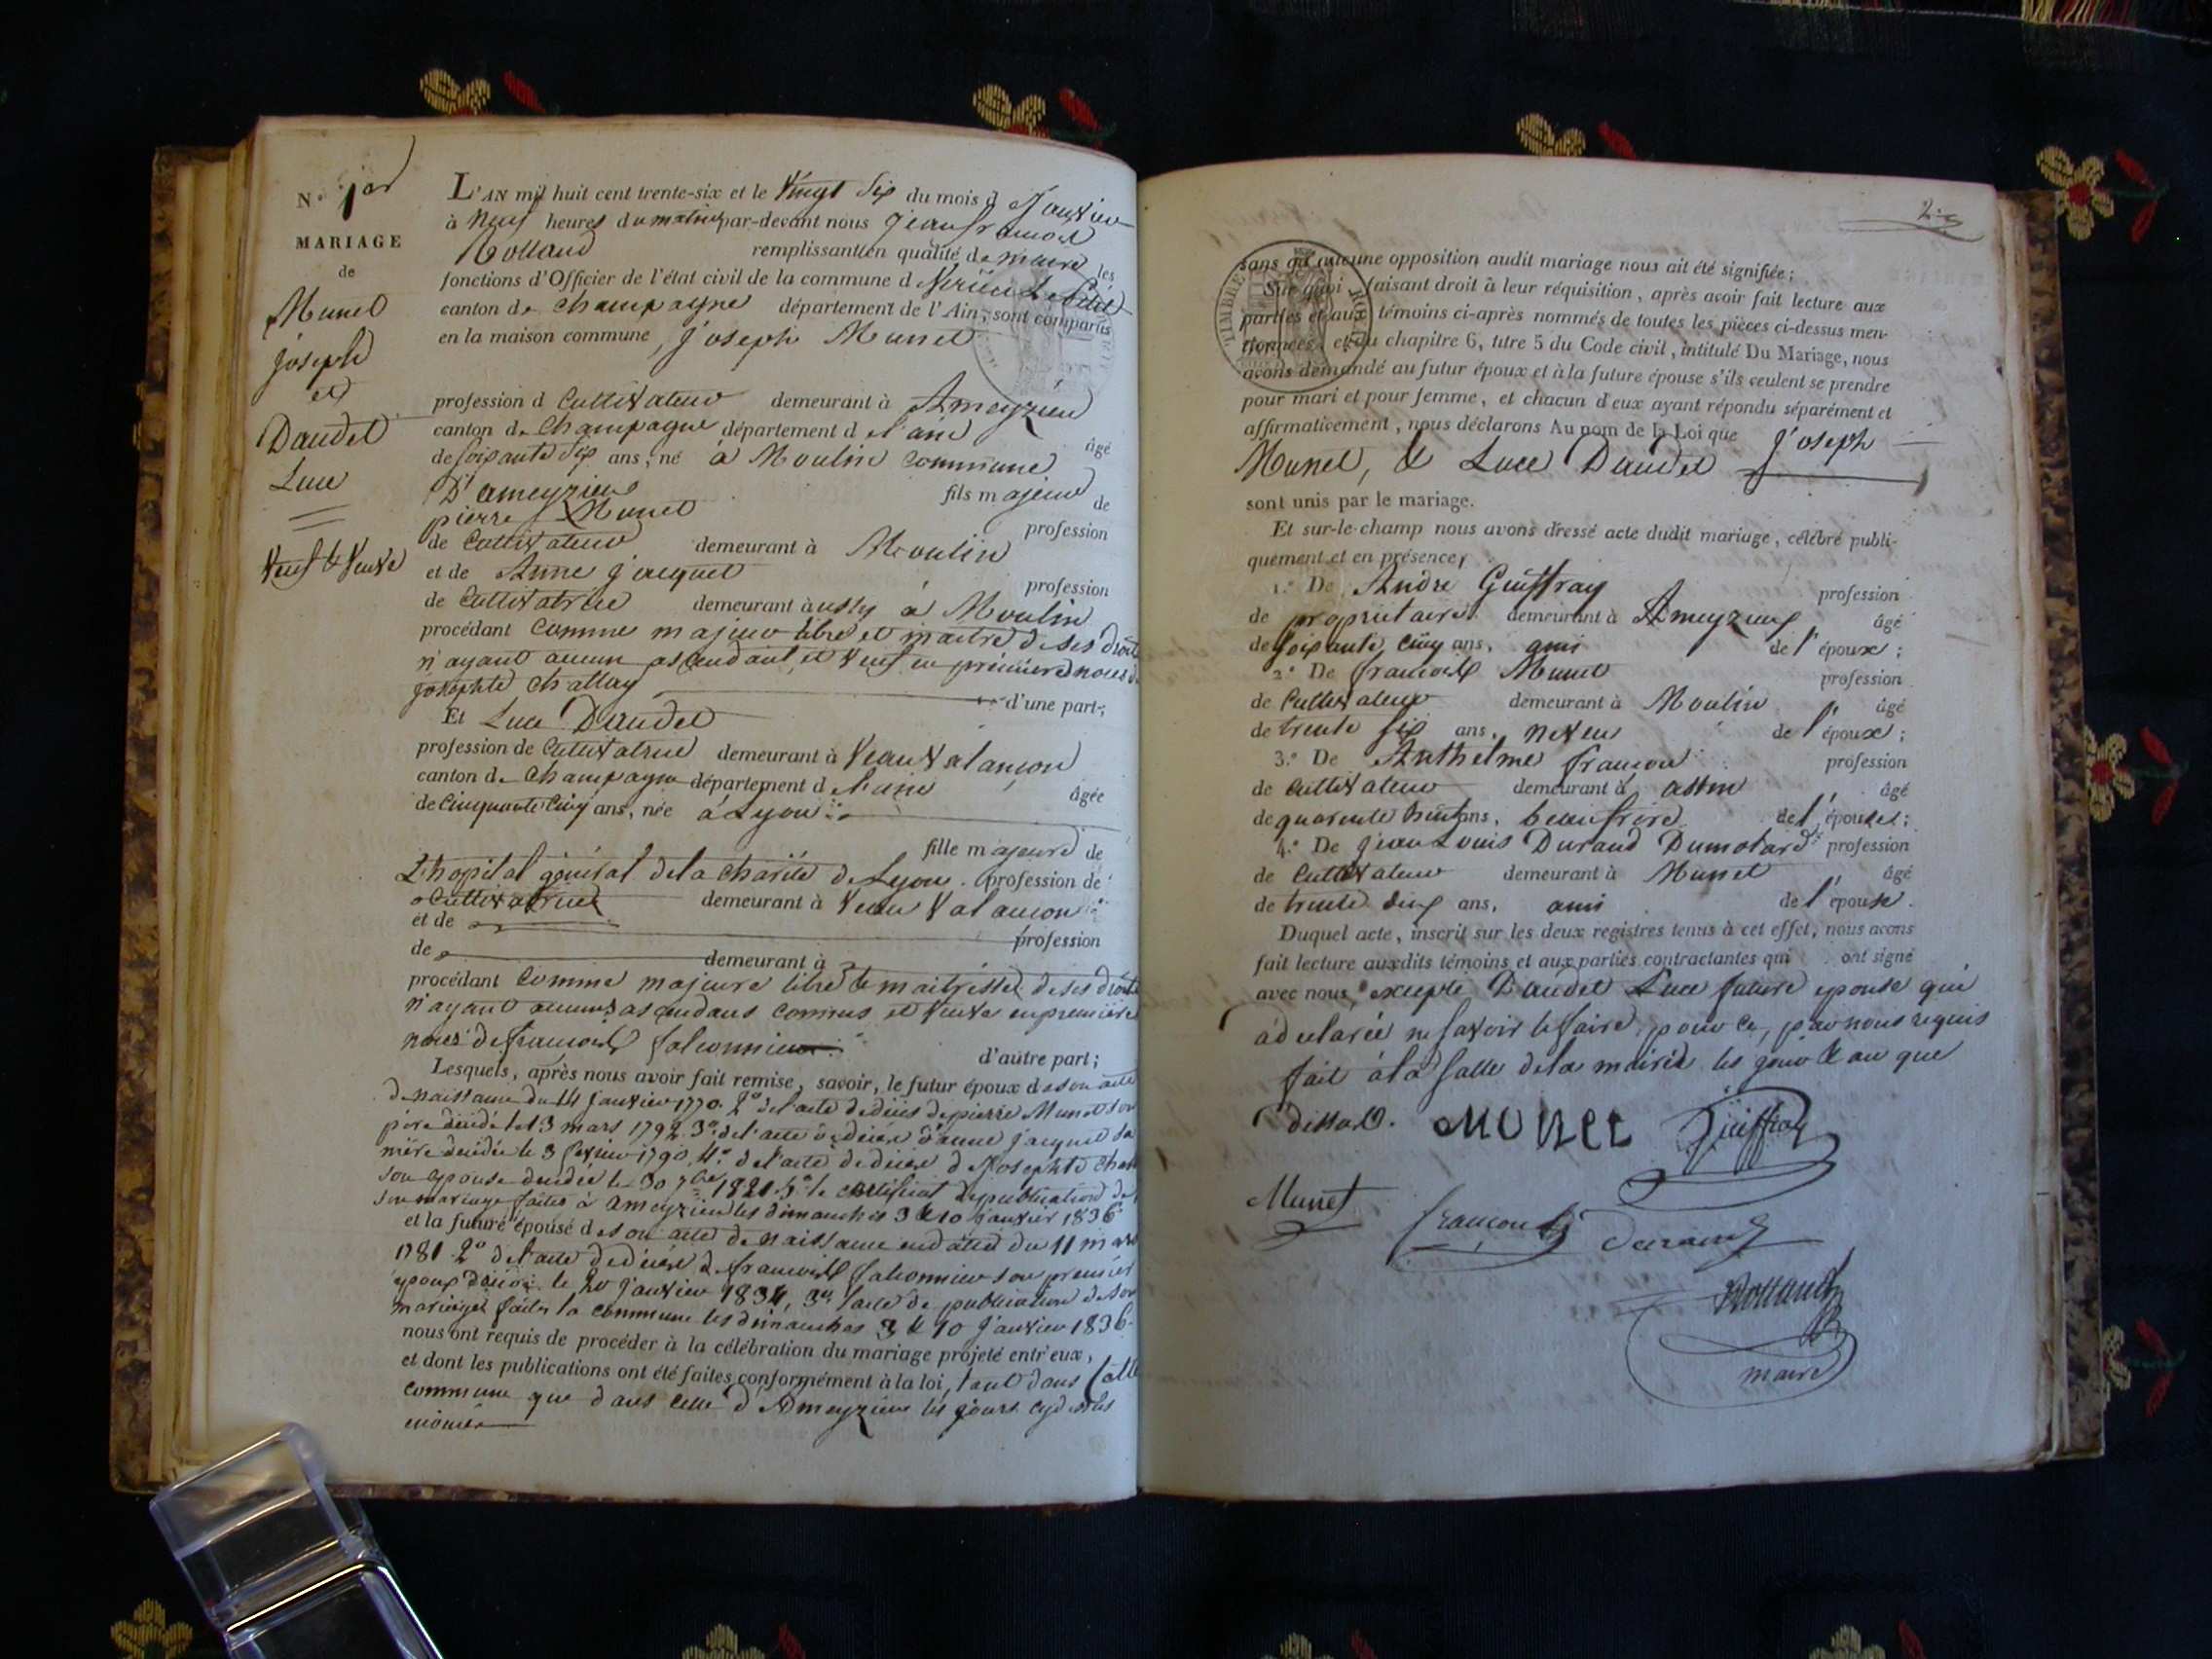 N.o 1er
MARIAGE
de
Munet
joseph
et
Daudet
Luce
Veuf & Veuve
L'AN mil huit cent trente-six et le Vingt Six du mois d Janvier
à Neuf heures du matin par-devant nous jean françois
Rolland remplissant en qualité de maire les
fonctions d'Officier de l'état civil de la commune d Virieu Le Petit
canton de Champagne département de l'Ain, sont comparus
en la maison commune, Joseph Munet
profession d Cultivateur demeurant à Ameyzieu
canton de Champagne département d el'ain âgé
de Soixante Six ans, né à Moulin Commune
D'ameyzieu fils majeur de
pierre Munet profession
de Cultivateur demeurant à Moulin
et de Anne jacquet profession
de Cultivatrice demeurant à à Moulin
procédant Comme majeur libre et maitre de ses droits
n'ayant aucun ascendant, et Veuf en première noces de
josephte Challay d'une part;
Et Luce Daudet
profession de Cultivatrice demeurant à Veauxalançon
canton de Champagne département d
de Cinquante Cinq ans, née à Lyon âgée
fille majeure de
L'hopital général de la Charité de Lyon. profession de
Cultivatrice demeurant à
et de profession
de demeurant à
procédant Comme majeure libre & maitresse de ses droits
n'ayant aucuns ascendans connus et Veuve en première
noces de françois falconnier d'autre part;
Lesquels, après nous avoir fait remise, savoir, le futur époux de son acte
de naissance du 14 janvier 1770. 2o de l'acte de décès de pierre Munet son
père décédé le 13 mars 1792. 3o de l'acte de décès d'anne jacquet sa
mère décédée le 3 fevrier 1790. 4o de l'acte de décès de Josephte
son epouse decedée le 30 7bre 1821. 5o le certificat de publication de
son mariage faites à ameyzieu les dimanches 3 & 10 janvier 1836
et la future épouse de son acte de naissance en date du 11 mars
1781. 2o de l'acte de décès de françois falconnier son premier
époux décédé le 20 janvier 1834, 3o l'acte de publication de son
mariage faites la commune les dimanches 3 & 10 janvier 1836
nous ont requis de procéder à la célébration du mariage projeté entr'eux,
et dont les publications ont été faites conformément à la loi, tant dans Cette
commune que dans celle d'Ameyzieu les jours cy dessus
enoncés
2
TIMBRE ROYAL
sans qu'aucune opposition audit mariage nous ait été signifiée;
Sur quoi faisant droit à leur réquisition, après avoir fait lecture aux
parties et aux témoins ci-après nommés de toutes les pièces ci-dessus men-
tionnées, et du chapitre 6, titre 5 du Code civil, intitulé Du Mariage, nous
avons demandé au futur époux et à la future épouse s'ils veulent se prendre
pour mari et pour femme, et chacun d'eux ayant répondu séparément et
affirmativement, nous déclarons Au nom de la Loi que Joseph
Munet, & Luce Daudet
sont unis par le mariage.
Et sur-le-champ nous avons dressé acte dudit mariage, célébré publi-
quement et en présence,
1.o De Andre Guiffray profession
de proprietaire demeurant à Ameyzieu âgé
de soixante cinq ans, ami de l'époux;
2.o De françois Munet profession
de Cultivateur demeurant à Moulin âgé
de trente six ans, neveu de l'époux;
3.o De Anthelme françon profession
de Cultivateur demeurant à âgé
de quarente huit ans, beaufrère de l'épouse;
4.o De jean Louis Durand Dumolard profession
de Cultivateur demeurant à Munet âgé
de trente ans, ami de l'épouse.
Duquel acte, inscrit sur les deux registres tenus à cet effet, nous avons
fait lecture auxdits témoins et aux parties contractantes qui ont signé
avec nous, excepté Daudet Luce future epouse qui
a déclarée ne savoir le faire, pour ce, par nous requis
fait à la salle de la mairie les jour & an que
dessus.
MUNET
Guiffray
Munet
françon
Durand
Rolland
maire